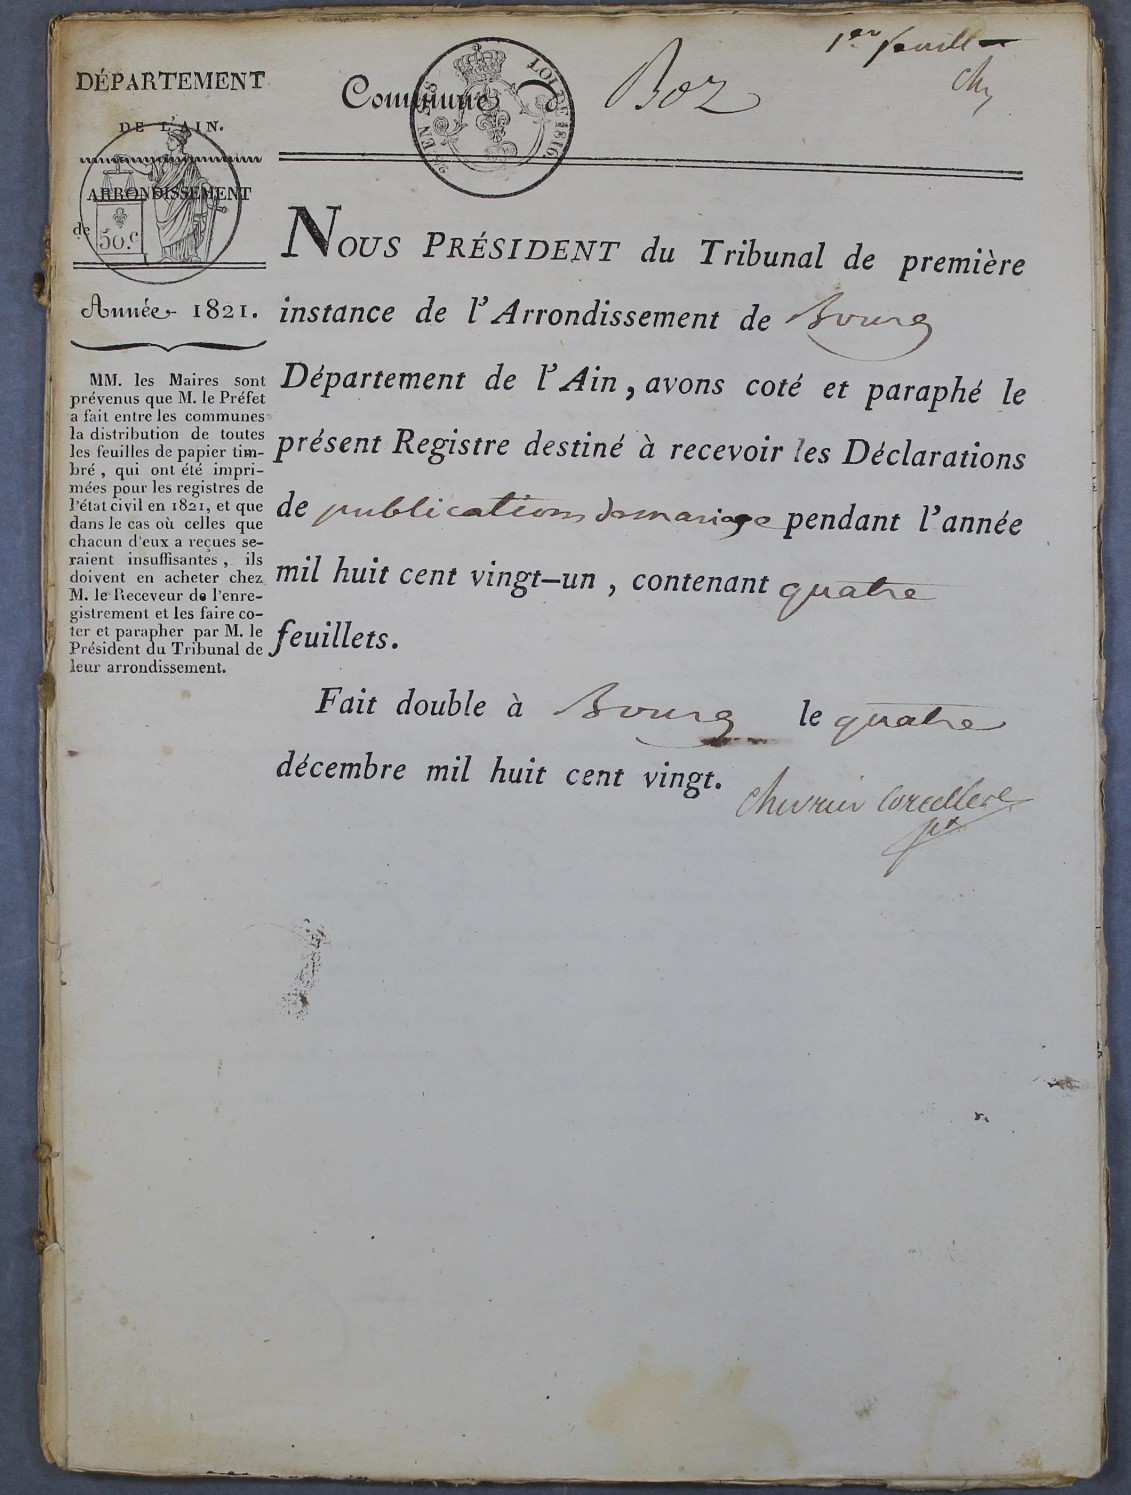 1er feuillet
Ch
DÉPARTEMENT
DE L'AIN.
ARRONDISSEMENT
de
50 c
Année 1821.
MM. les Maires sont
prévenus que M. le Préfet
a fait entre les communes
la distribution de toutes
les feuilles de papier tim-
bré, qui ont été impri-
mées pour les registres de
l'état civil en 1821, et que
dans le cas où celles que
chacun d'eux a reçues se-
raient insuffisantes, ils
doivent en acheter chez
M. le Receveur de l'enre-
gistrement et les faire co-
ter et parapher par M. le
Président du Tribunal de
leur arrondissement.
Commune d Boz
LOI DE 1816.
EN SUS
NOUS PRÉSIDENT du Tribunal de première
instance de l'Arrondissement de Bourg
Département de l'Ain, avons coté et paraphé le
présent Registre destiné à recevoir les Déclarations
de publications de mariage pendant l'année
mil huit cent vingt-un, contenant quatre
feuillets.
Fait double à Bourg le quatre
décembre mil huit cent vingt.
Chevrier Corcelles
pt